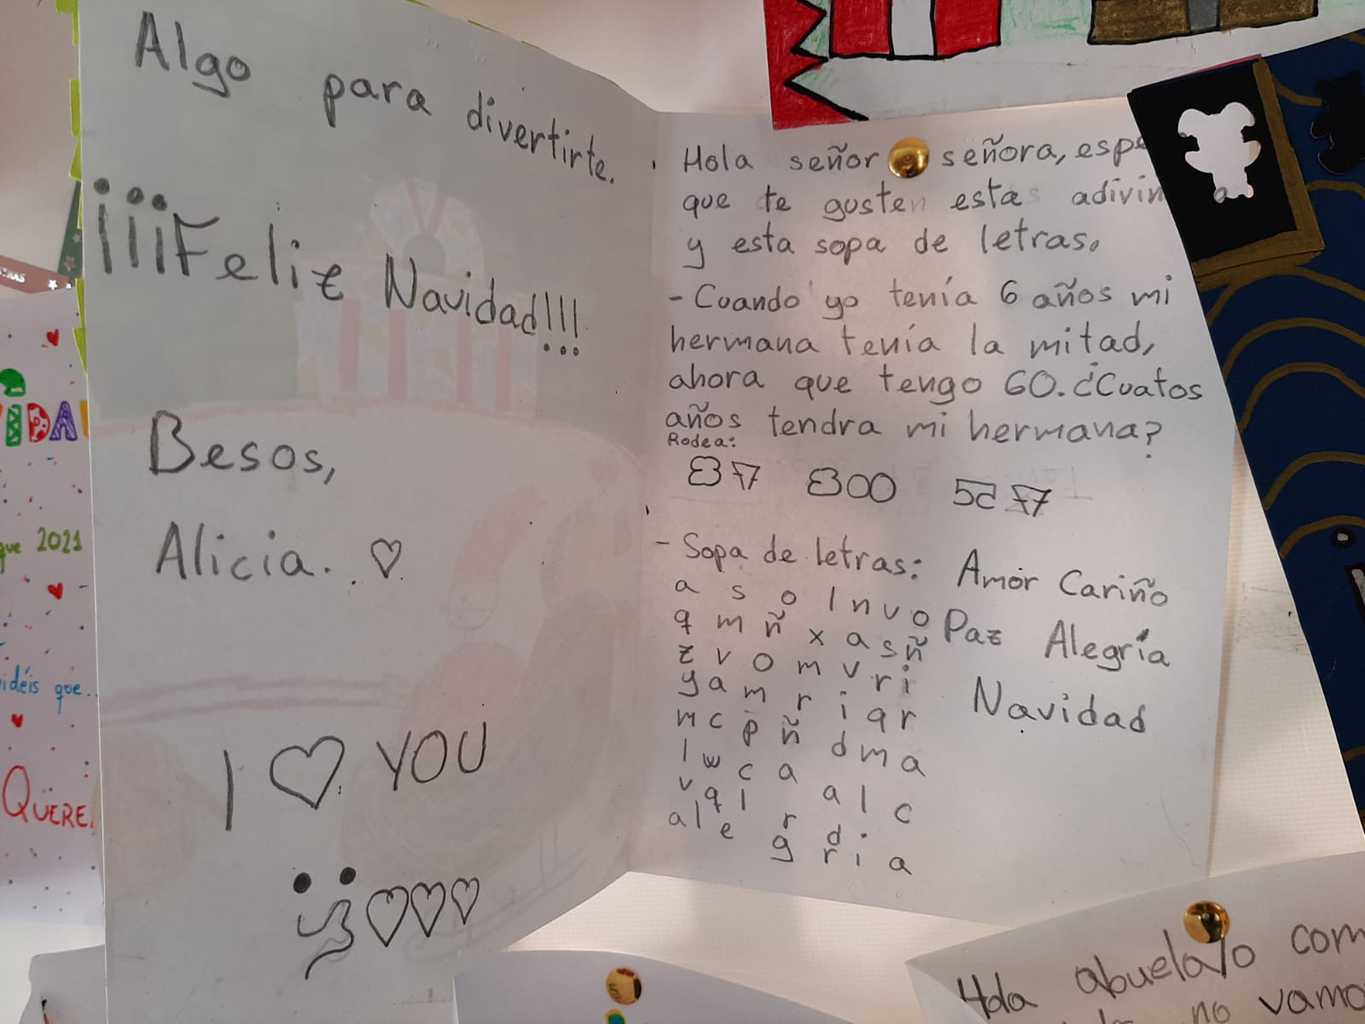 Algo para divertirte.
¡¡¡Feliz Navidad!!!
Besos,
Alicia.
I YOU
Hola señor señora,
que te gusten estas
y esta sopa de letras.
- Cuando yo tenía 6 años mi
hermana tenía la mitad,
ahora que tengo 60. ¿Cuatos
años tendra mi hermana?
Rodea:
37 300 57
- Sopa de letras:
a s o l n v o
q m ñ x a s ñ
z v o m v r i
y a m r i q r
m c p ñ d m a
l w c a a l c
v q l r d i a
a l e g r i a
Amor Cariño
Paz Alegría
Navidad
que 2021
idéis que..
QUERE
Hola abuela/o com
no vamo